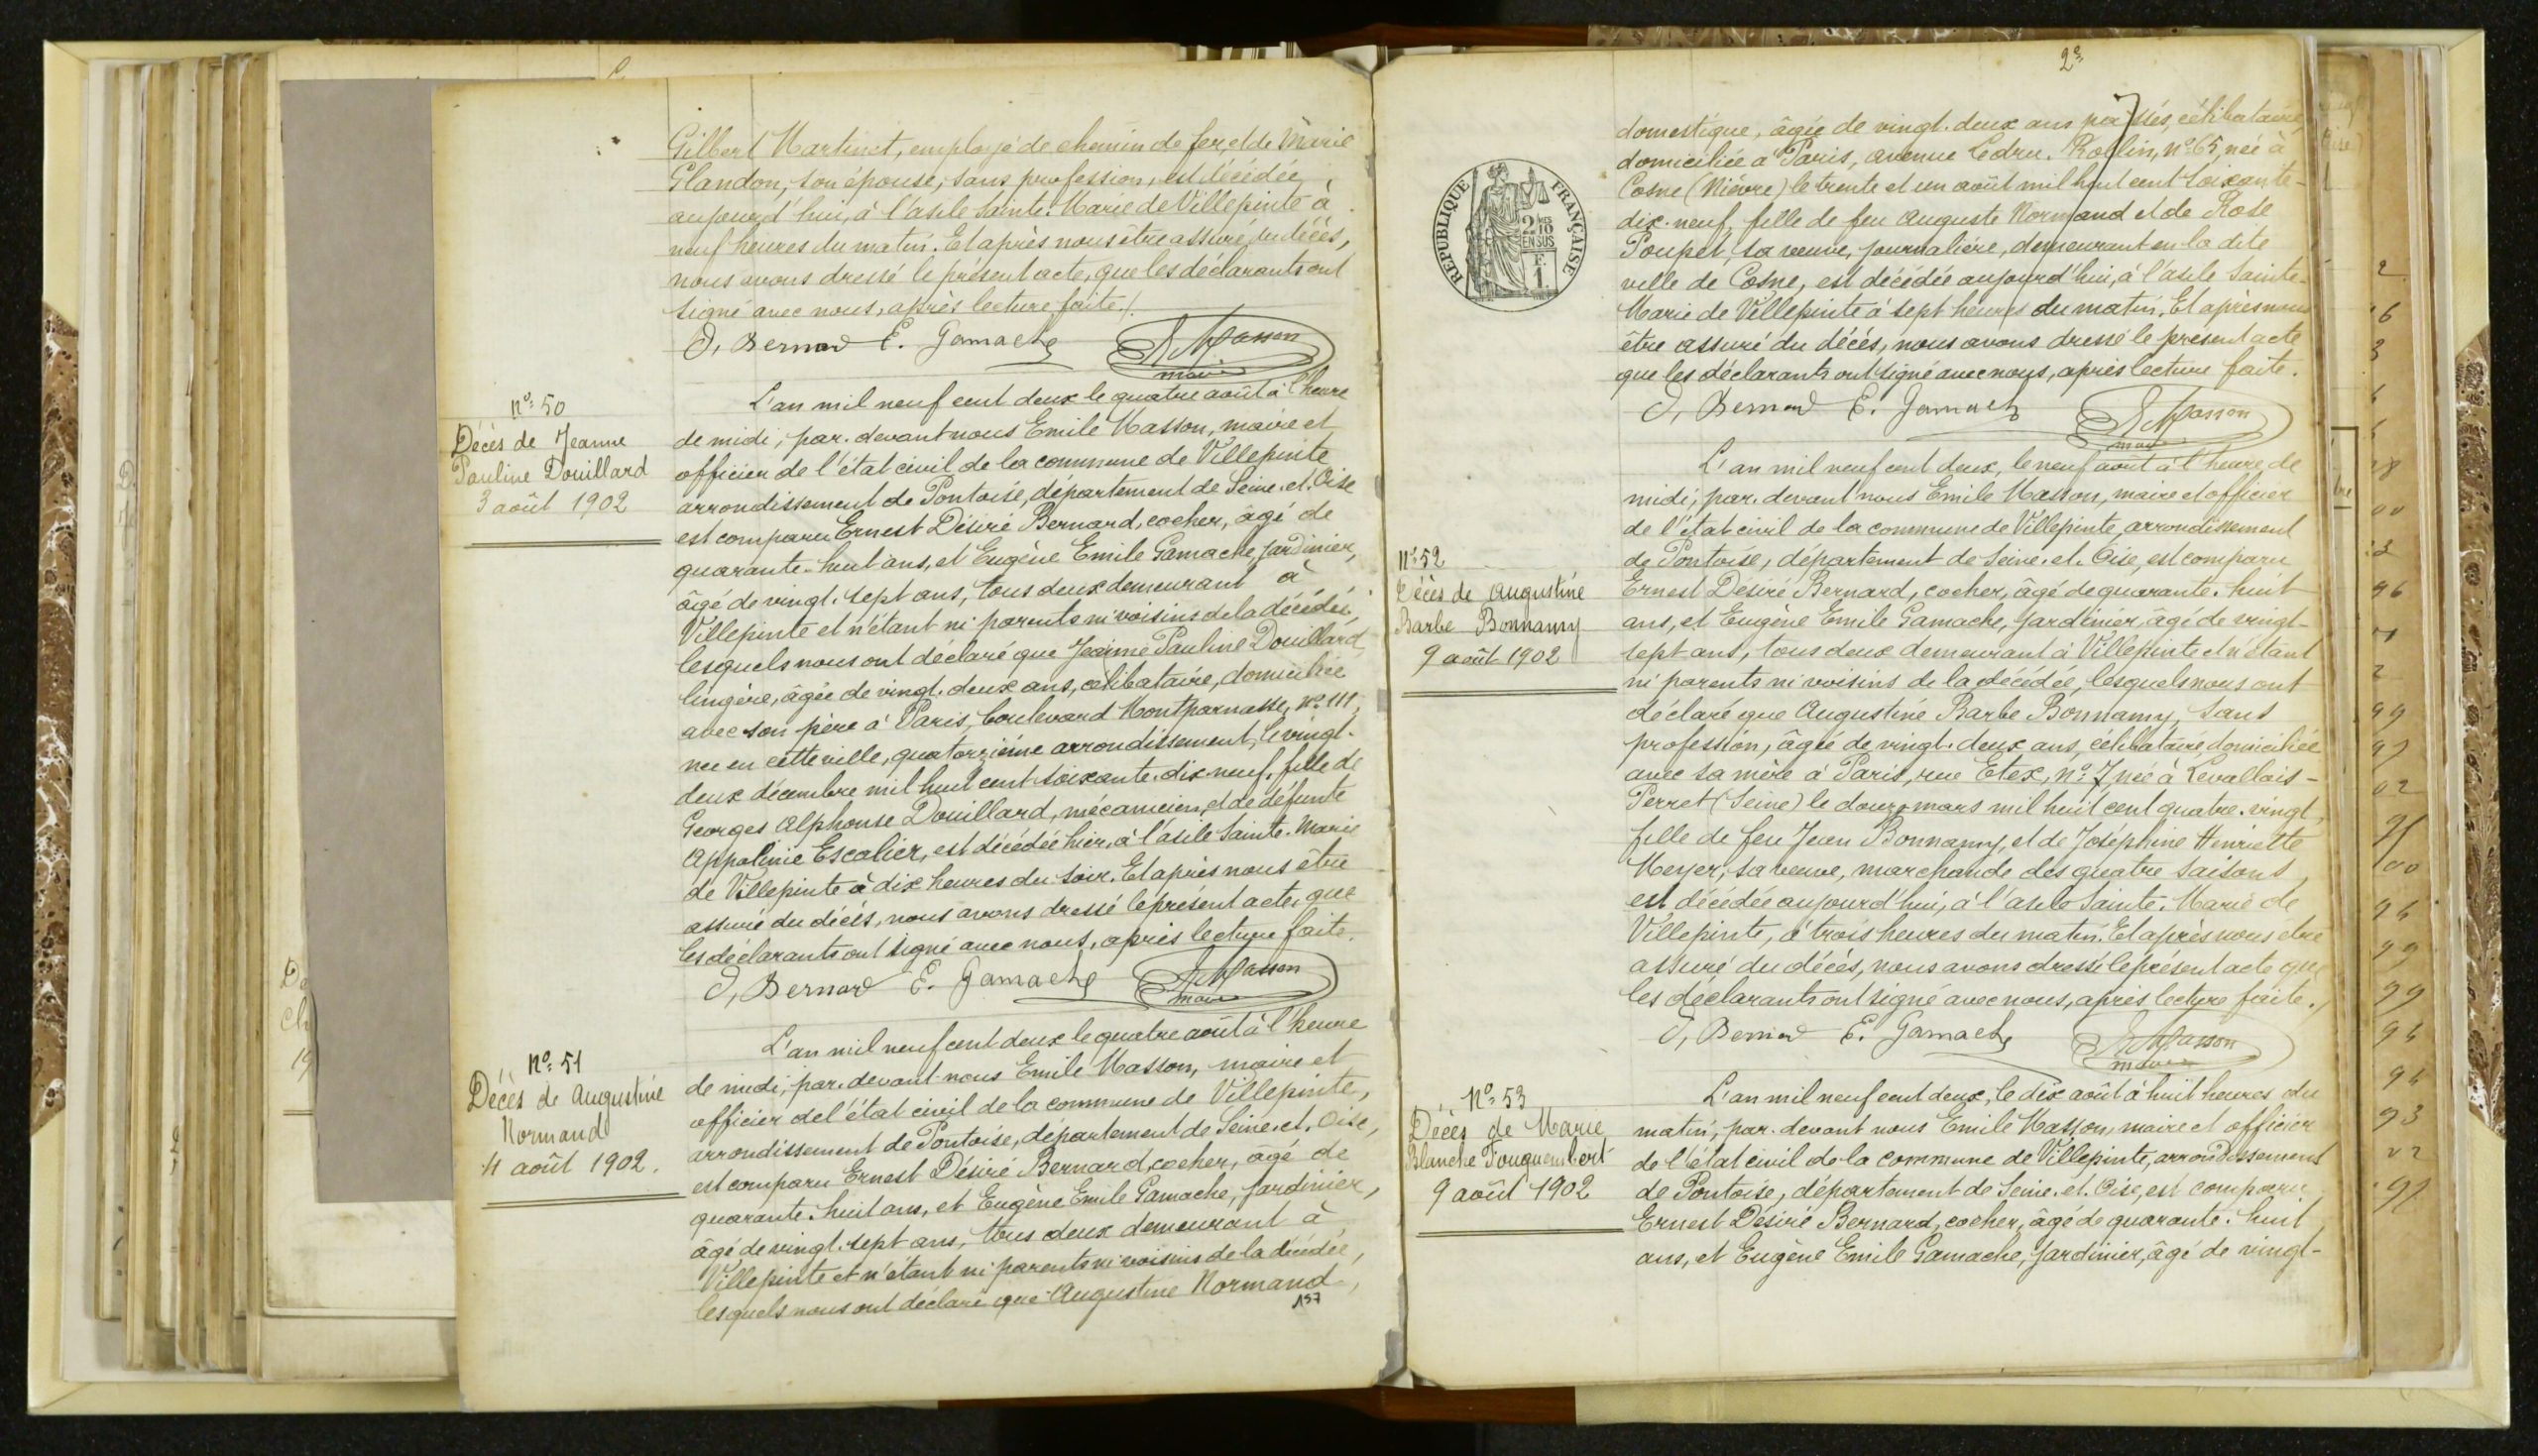 Gilbert Martinet, employé de chemin de fer, et de Marie
Glandon, son épouse, sans profession, est décédée,
aujourd'hui, à l'asile Sainte-Marie de Villepinte à
neuf heures du matin. Et après nous être assuré du décès,
nous avons dressé le présent acte, que les déclarants ont
signé avec nous, après lecture faite./.
D, Bernard E. Gamache E Masson
maire
N° 50
Décès de Jeanne
Pauline Douillard
3 août 1902
L'an mil neuf cent deux le quatre août à l'heure
de midi, par-devant nous Emile Masson, maire et
officier de l'état civil de la commune de Villepinte
arrondissement de Pontoise, département de Seine-et-Oise
est comparu Ernest Désiré Bernard, cocher, âgé de
quarante-huit ans, et Eugène Emile Gamache, jardinier,
âgé de vingt-sept ans, tous deux demeurant à
Villepinte et n'étant ni parents ni voisins de la décédée,
lesquels nous ont déclaré que Jeanne Pauline Douillard,
lingère, âgée de vingt-deux ans, célibataire, domiciliée
avec son père à Paris, boulevard Montparnasse, N° 111,
née en cette ville, quatorzième arrondissement, le vingt-
deux décembre mil huit cent soixante-dix-neuf, fille de
Georges Alphonse Douillard, mécanicien, et de défunte
Appolinie Escalier, est décédée hier, à l'asile Sainte-Marie
de Villepinte à dix heures du soir. Et après nous être
assuré du décès, nous avons dressé le présent acte, que
les déclarants ont signé avec nous, après lecture faite.
D, Bernard E. Gamache E Masson
maire
N° 51
Décès de Augustine
Normand
4 août 1902.
L'an mil neuf cent deux le quatre août à l'heure
de midi, par-devant nous Emile Masson, maire et
officier de l'état civil de la commune de Villepinte,
arrondissement de Pontoise, département de Seine-et-Oise,
est comparu Ernest Désiré Bernard, cocher, âgé de
quarante-huit ans, et Eugène Emile Gamache, jardinier,
âgé de vingt-sept ans, tous deux demeurant à
Villepinte et n'étant ni parents ni voisins de la décédée,
lesquels nous ont déclaré que Augustine Normand,
157
RÉPUBLIQUE FRANÇAISE
2/10
EN SUS
F.
1.
domestique, âgée de vingt-deux ans passés, célibataire,
domiciliée à Paris, avenue Ledru-Rollin, N° 65, née à
Cosne (Nièvre) le trente et un août mil huit cent soixante-
dix-neuf, fille de feu Auguste Normand et de Rose
Poupet, sa veuve, journalière, demeurant en la dite
ville de Cosne, est décédée aujourd'hui, à l'asile Sainte-
Marie de Villepinte à sept heures du matin. Et après nous
être assuré du décès, nous avons dressé le présent acte
que les déclarants ont signé avec nous, après lecture faite.
D, Bernard E. Gamache E Masson
maire
N° 52
Décès de Augustine
Barbe Bonnamy
9 août 1902
L'an mil neuf cent deux, le neuf août à l'heure de
midi, par-devant nous Emile Masson, maire et officier
de l'état civil de la commune de Villepinte, arrondissement
de Pontoise, département de Seine-et-Oise, est comparu
Ernest Désiré Bernard, cocher, âgé de quarante-huit
ans, et Eugène Emile Gamache, jardinier, âgé de vingt-
sept ans, tous deux demeurant à Villepinte et n'étant
ni parents ni voisins de la décédée, lesquels nous ont
déclaré que Augustine Barbe Bonnamy, sans
profession, âgée de vingt-deux ans, célibataire, domiciliée
avec sa mère à Paris, rue Etex, N° 7 née à Levallois-
Perret (Seine) le douze mars mil huit cent quatre-vingt,
fille de feu Jean Bonnamy, et de Joséphine Henriette
Meyer, sa veuve, marchande des quatre saisons,
est décédée aujourd'hui, à l'asile Sainte-Marie de
Villepinte, à trois heures du matin. Et après nous être
assuré du décès, nous avons dressé le présent acte que
les déclarants ont signé avec nous, après lecture faite.
D, Bernard E. Gamache E Masson
maire
N° 53
Décès de Marie
Blanche Fouquembert
9 août 1902
L'an mil neuf cent deux, le dix août à huit heures du
matin, par-devant nous Emile Masson, maire et officier
de l'état civil de la commune de Villepinte, arrondissement
de Pontoise, département de Seine-et-Oise, est comparu
Ernest Désiré Bernard, cocher, âgé de quarante-huit
ans, et Eugène Emile Gamache, jardinier, âgé de vingt-